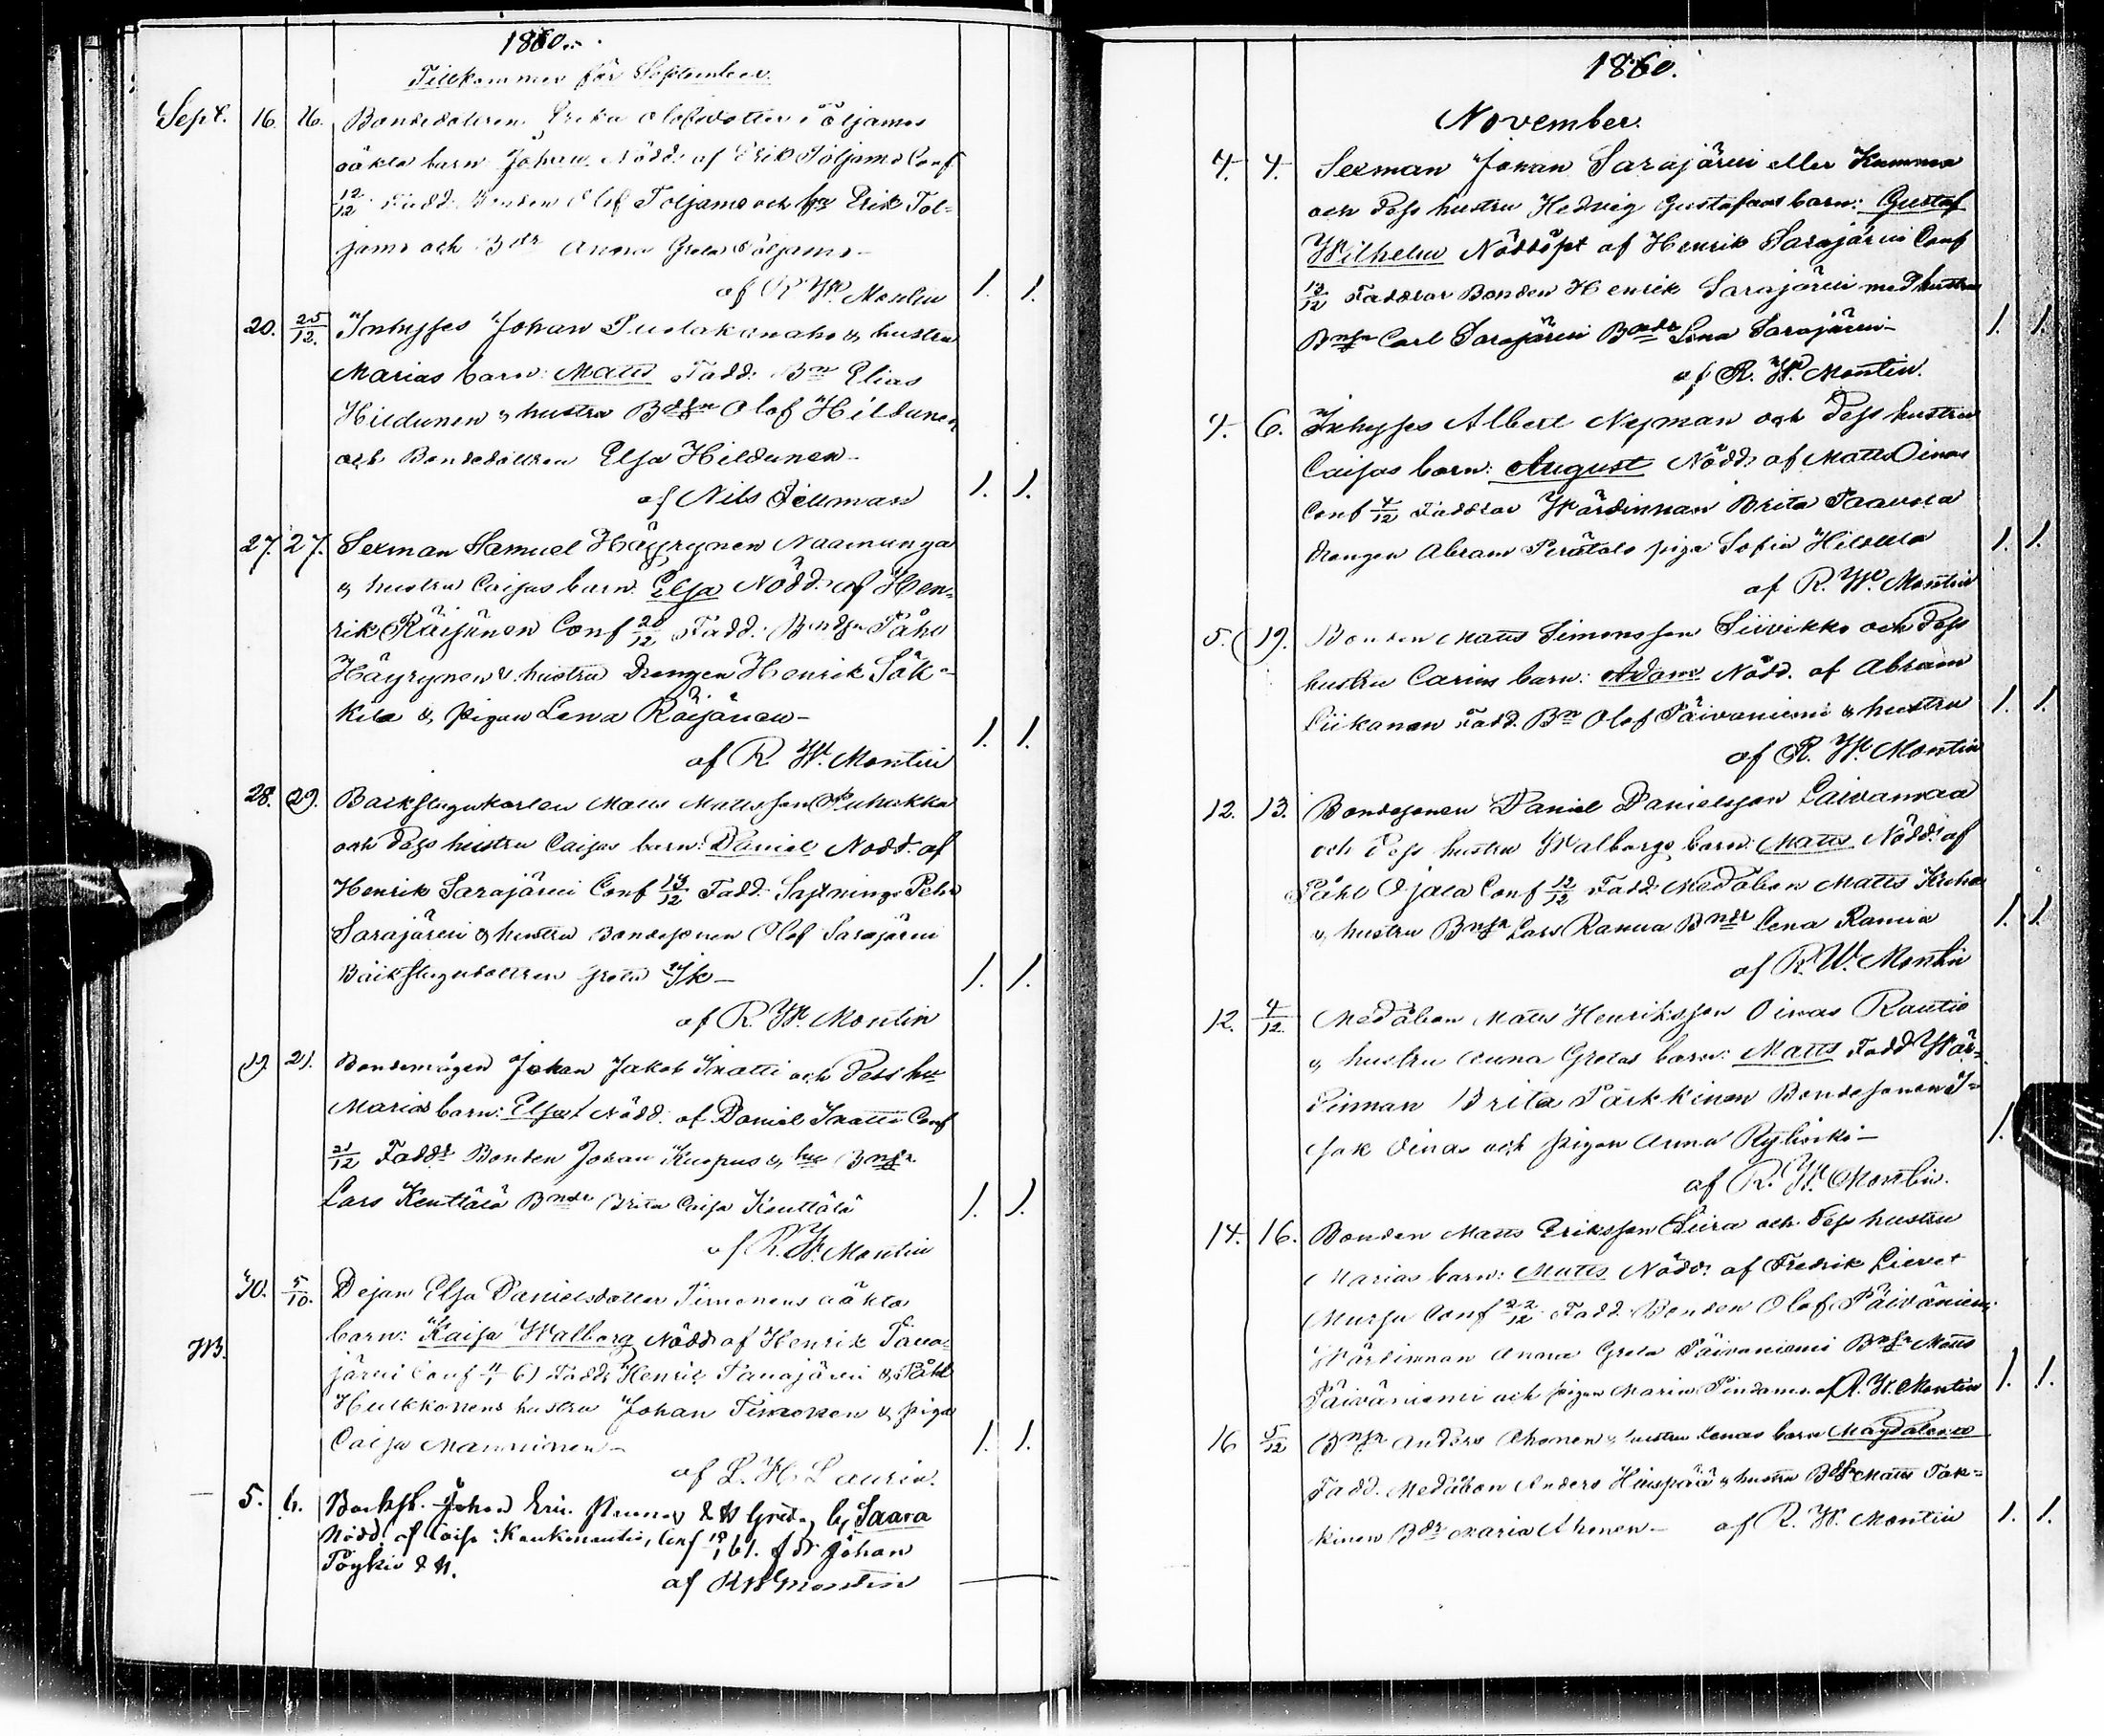 1860.
Tillkommer för September.
Sept. 16. 16. Bondedottren Erika Olofsdotter Töljamos
oäkta barn Johan Nödd. af Erik Töljamo Conf
12/12 Fadd. Bonden Olof Töljamo och hu Erik Töl-
jamo och Bdr Anna Greta Töljamo-
af R. W. Montin 1. 1.
20. 25/12. Inhyses Johan Puolakanaho & hustru
Marias barn: Matts Fadd: Bn Elias
Hildunen & hustru Bdsn Olof Hildunen
och Bondedottren Elsa Hildunen-
af Nils Fellman 1. 1.
27. 27. Sexman Samuel Häyrynen Naamanga
& hustru Caijsas barn. Elsa Nödd. af Hen-
rik Räisänen Conf 20/12 Fadd: Bndsn Påhl
Häyrynen & hustru Drengen Henrik Säk-
kilä & pigan Lena Räisänen-
af R. W. Montin 1. 1.
28. 29. Backstugukarlen Matts Mattsson Puhakka
och dess hustru Caijsas barn: Daniel Nödd. af
Henrik Sarajärvi Conf 13/12 Fadd: Sytninge Pehr
Sarajärvi & hustru Bondesonen Olof Sarajärvi
Backstugudottren Greta
af R. W. Montin 1. 1.
19. 21. Bondemågen Johan Jakob Inatti och dess hu
Marias barn: Elsa Nödd. af Daniel Inatti Conf
21/12 Faddr Bonden Johan Kuopus & hu Bnsn
Lars Kenttälä Bndr Brita Caisa Kenttälä
af R. W. Montin 1. 1.
30. 5/10. Dejan Elsa Danielsdotter Timonens oäkta
NB. barn: Kaisa Walborg Nödd. af Henrik Tana-
järvi Conf 61 Fadd. Henrik Tanajärvi & Påhl
Hulkkonens hustru Johan Timonen & piga
Caisa Manninen- 1. 1.
af L. H. Laurin.
5. 6. Backst. Johan Eric & H Greta, b, Saara
Nödd. af Caisa Kaukonautio, Conf 61. f Johan
Pöykiö & H.
af R W Montin
1860.
November.
4. 4. Sexman Johan Sarajärvi eller Kumma
och dess hustru Hedvig Gustafvas barn: Gustaf
Wilhelm Nöddöpt af Henrik Sarajärvi Conf
13/12 Faddrar Bonden Henrik Sarajärvi med hustru
Bnsn Carl Sarajärvi Bndr Lena Sarajärvi- 1. 1.
af R. W. Montin.
4. 6. Inhyses Albert Nyman och dess hustru
Caijsas barn: August Nödd. af Matts Oinas
Conf 4/12 Faddrar Wärdinnan Brita Paavola
drengen Abram Perätalo piga Sofia Hilotila 1. 1.
af R. W. Montin
5. 19. Bonden Matts Simonsson Siivikko och dess
hustru Carins barn: Adam Nödd. af Abram
Liikanen Fadd. Bn Olof Päivaniemi & hustru 1. 1.
af R. W. Montin
12. 13. Bondesonen Daniel Danielsson Laivamaa
och dess hustru Walborgs barn: Matts Nödd. af
Påhl Ojala Conf 12/12 Fadd: Medåbon Matts
& hustru Bnsn Lars Ranua Bndr Lena Ranua 1. 1.
af R. W. Montin
12. 4/12. Medåbon Matts Henriksson Oinas Rautio
& hustru Anna Gretas barn: Matts Fadd Wär-
dinnan Brita Parkkinen Bondesonen I-
sak Oinas och pigan Anna 1.
af R. W. Montin.
14. 16. Bonden Matts Eriksson Siira och dess hustru
Marias barn: Matts Nödd. af Fredrik
Mursu Conf 22/12 Fadd. Bonden Olof Päiväniemi
Wärdinnan Anna Greta Päivaniemi Bnsn Matts
Päivaniemi och pigan Maria af R. W. Montin 1. 1.
16 5/12 Bnsn Anders Ahonen & hustru Lenas barn Magdalena
Fadd. Medåbon Anders Hiirpää & hustru Bdsn Matts Tak-
kinen Bdr Maria Ahonen- af R. W. Montin 1. 1.